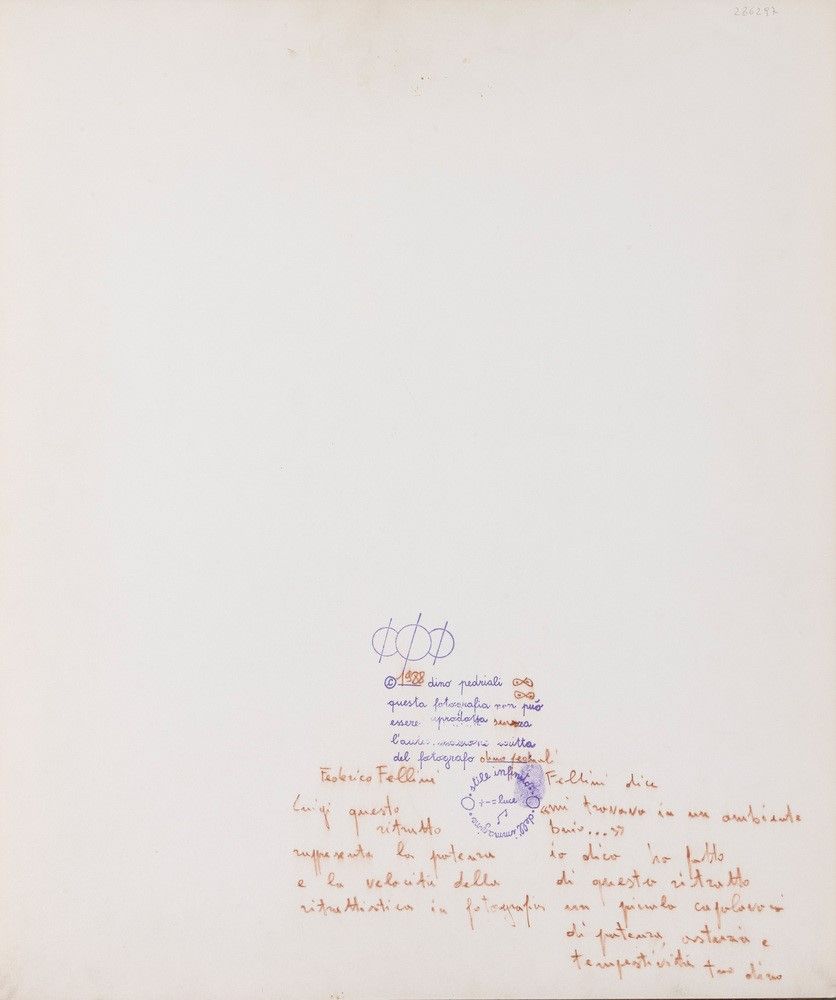 286297
© 1988 dino pedriali
questa fotografia non può
essere riprodotta senza
l'autorizzazione scritta
del fotografo dino pedriali
stile infinito dell'immagine
+-=luce
Federico Fellini
Luigi questo
ritratto
rappresenta la potenza
e la velocità della
ritrattistica in fotografia
Fellini dice
mi trovavo in un ambiente
buio...»
io dico ho fatto
di questo ritratto
un piccolo capolavoro
di potenza, astuzia e
tempestività tuo dino